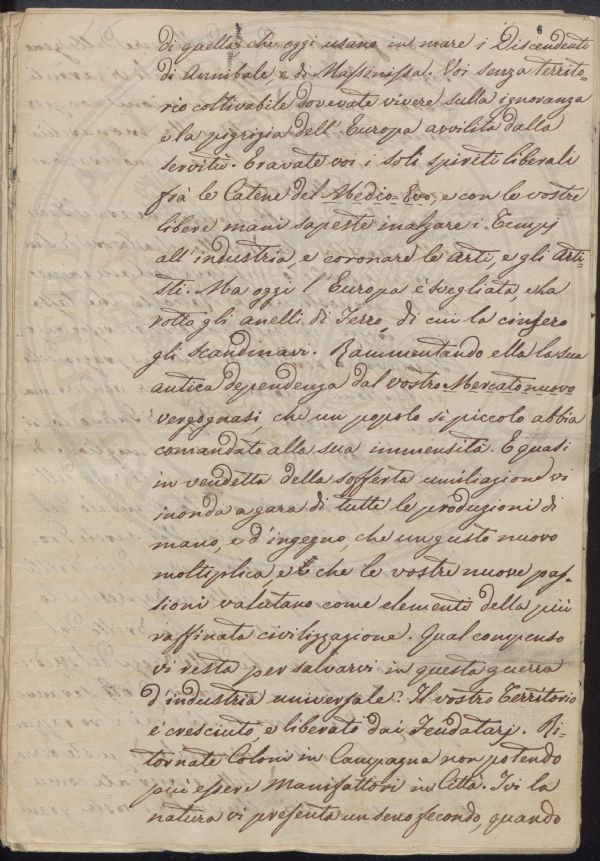 6
di quella che oggi usano in mare i Discendenti
di Annibale e di Massinissa. Voi senza territo-
rio coltivabile dovevate vivere sulla ignoranza
e la pigrizia dell'Europa avvilita dalla
servitù. Eravate voi i soli spiriti liberali
frà le Catene del Medio-Evo, e con le vostre
libere mani sapeste inalzare i Tempj
all'industria, e coronare le arti, e gli Arti-
sti. Ma oggi l'Europa è svegliata, e ha
rotto gli anelli di Ferro, di cui la cinsero
gli Scandinavi. Rammentando ella la sua
antica dependenza dal vostro Mercato nuovo
vergognasi, che un popolo si piccolo abbia
comandato alla sua immensità. E quasi
in vendetta della sofferta umiliazione vi
inonda a gara di tutte le produzioni di
mano, e d'ingegno, che un gusto nuovo
moltiplica, e che le vostre nuove pas-
sioni valutano come elementi della più
raffinata civilizzazione. Qual compenso
vi resta per salvarvi in questa guerra
d'industria universale? Il vostro Territorio
è cresciuto, e liberato dai Feudatarj. Ri-
tornate Coloni in Campagna non potendo
più essere Manifattori in Città. Ivi la
natura vi presenta un seno fecondo, quando